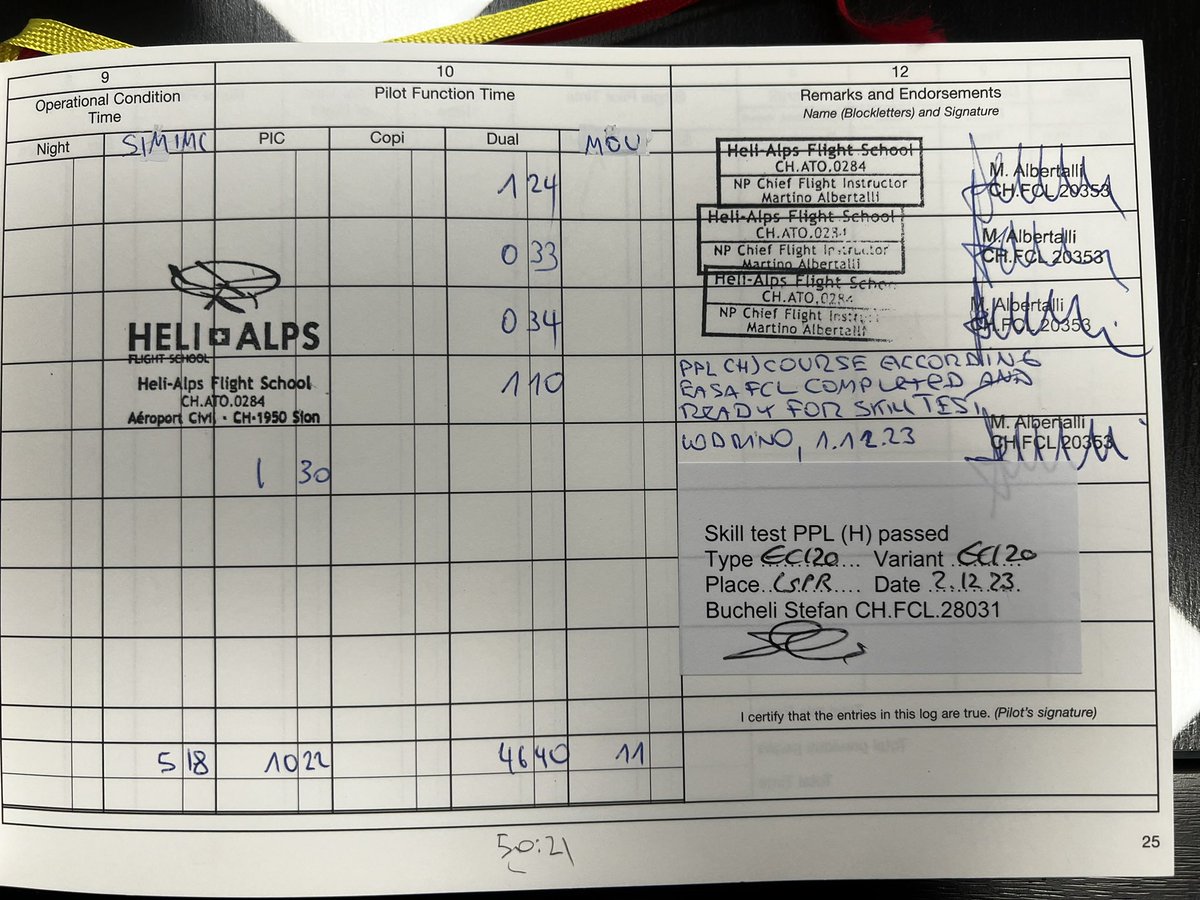 9
10
12
Operational Condition
Time
Pilot Function Time
Remarks and Endorsements
Name (Blockletters) and Signature
Night
SIMIMC
PIC
Copi
Dual
MOU
1 24
Heli-Alps Flight School
CH.ATO.0284
NP Chief Flight Instructor
Martino Albertalli
M. Albertalli
CH.FCL 20353
0 33
Heli-Alps Flight School
CH.ATO.0284
NP Chief Flight Instructor
Martino Albertalli
M. Albertalli
CH.FCL 20353
0 34
Heli-Alps Flight School
CH.ATO.0284
NP Chief Flight Instruct
Martino Albertalli
M. Albertalli
CH.FCL 20353
HELI ALPS
FLIGHT SCHOOL
Heli-Alps Flight School
CH.ATO.0284
Aéroport Civil - CH-1950 Sion
1 10
PPL (H) COURSE ACCORDING
EASA FCL COMPLETED AND
READY FOR SKILL TEST
1.12.23
M. Albertalli
CH.FCL 20353
1 30
Skill test PPL (H) passed
Type EC120 Variant EC120
Place LSPR Date 2.12.23
Bucheli Stefan CH.FCL.28031
I certify that the entries in this log are true. (Pilot's signature)
5 18 10 22 46 40 11
50:21
25